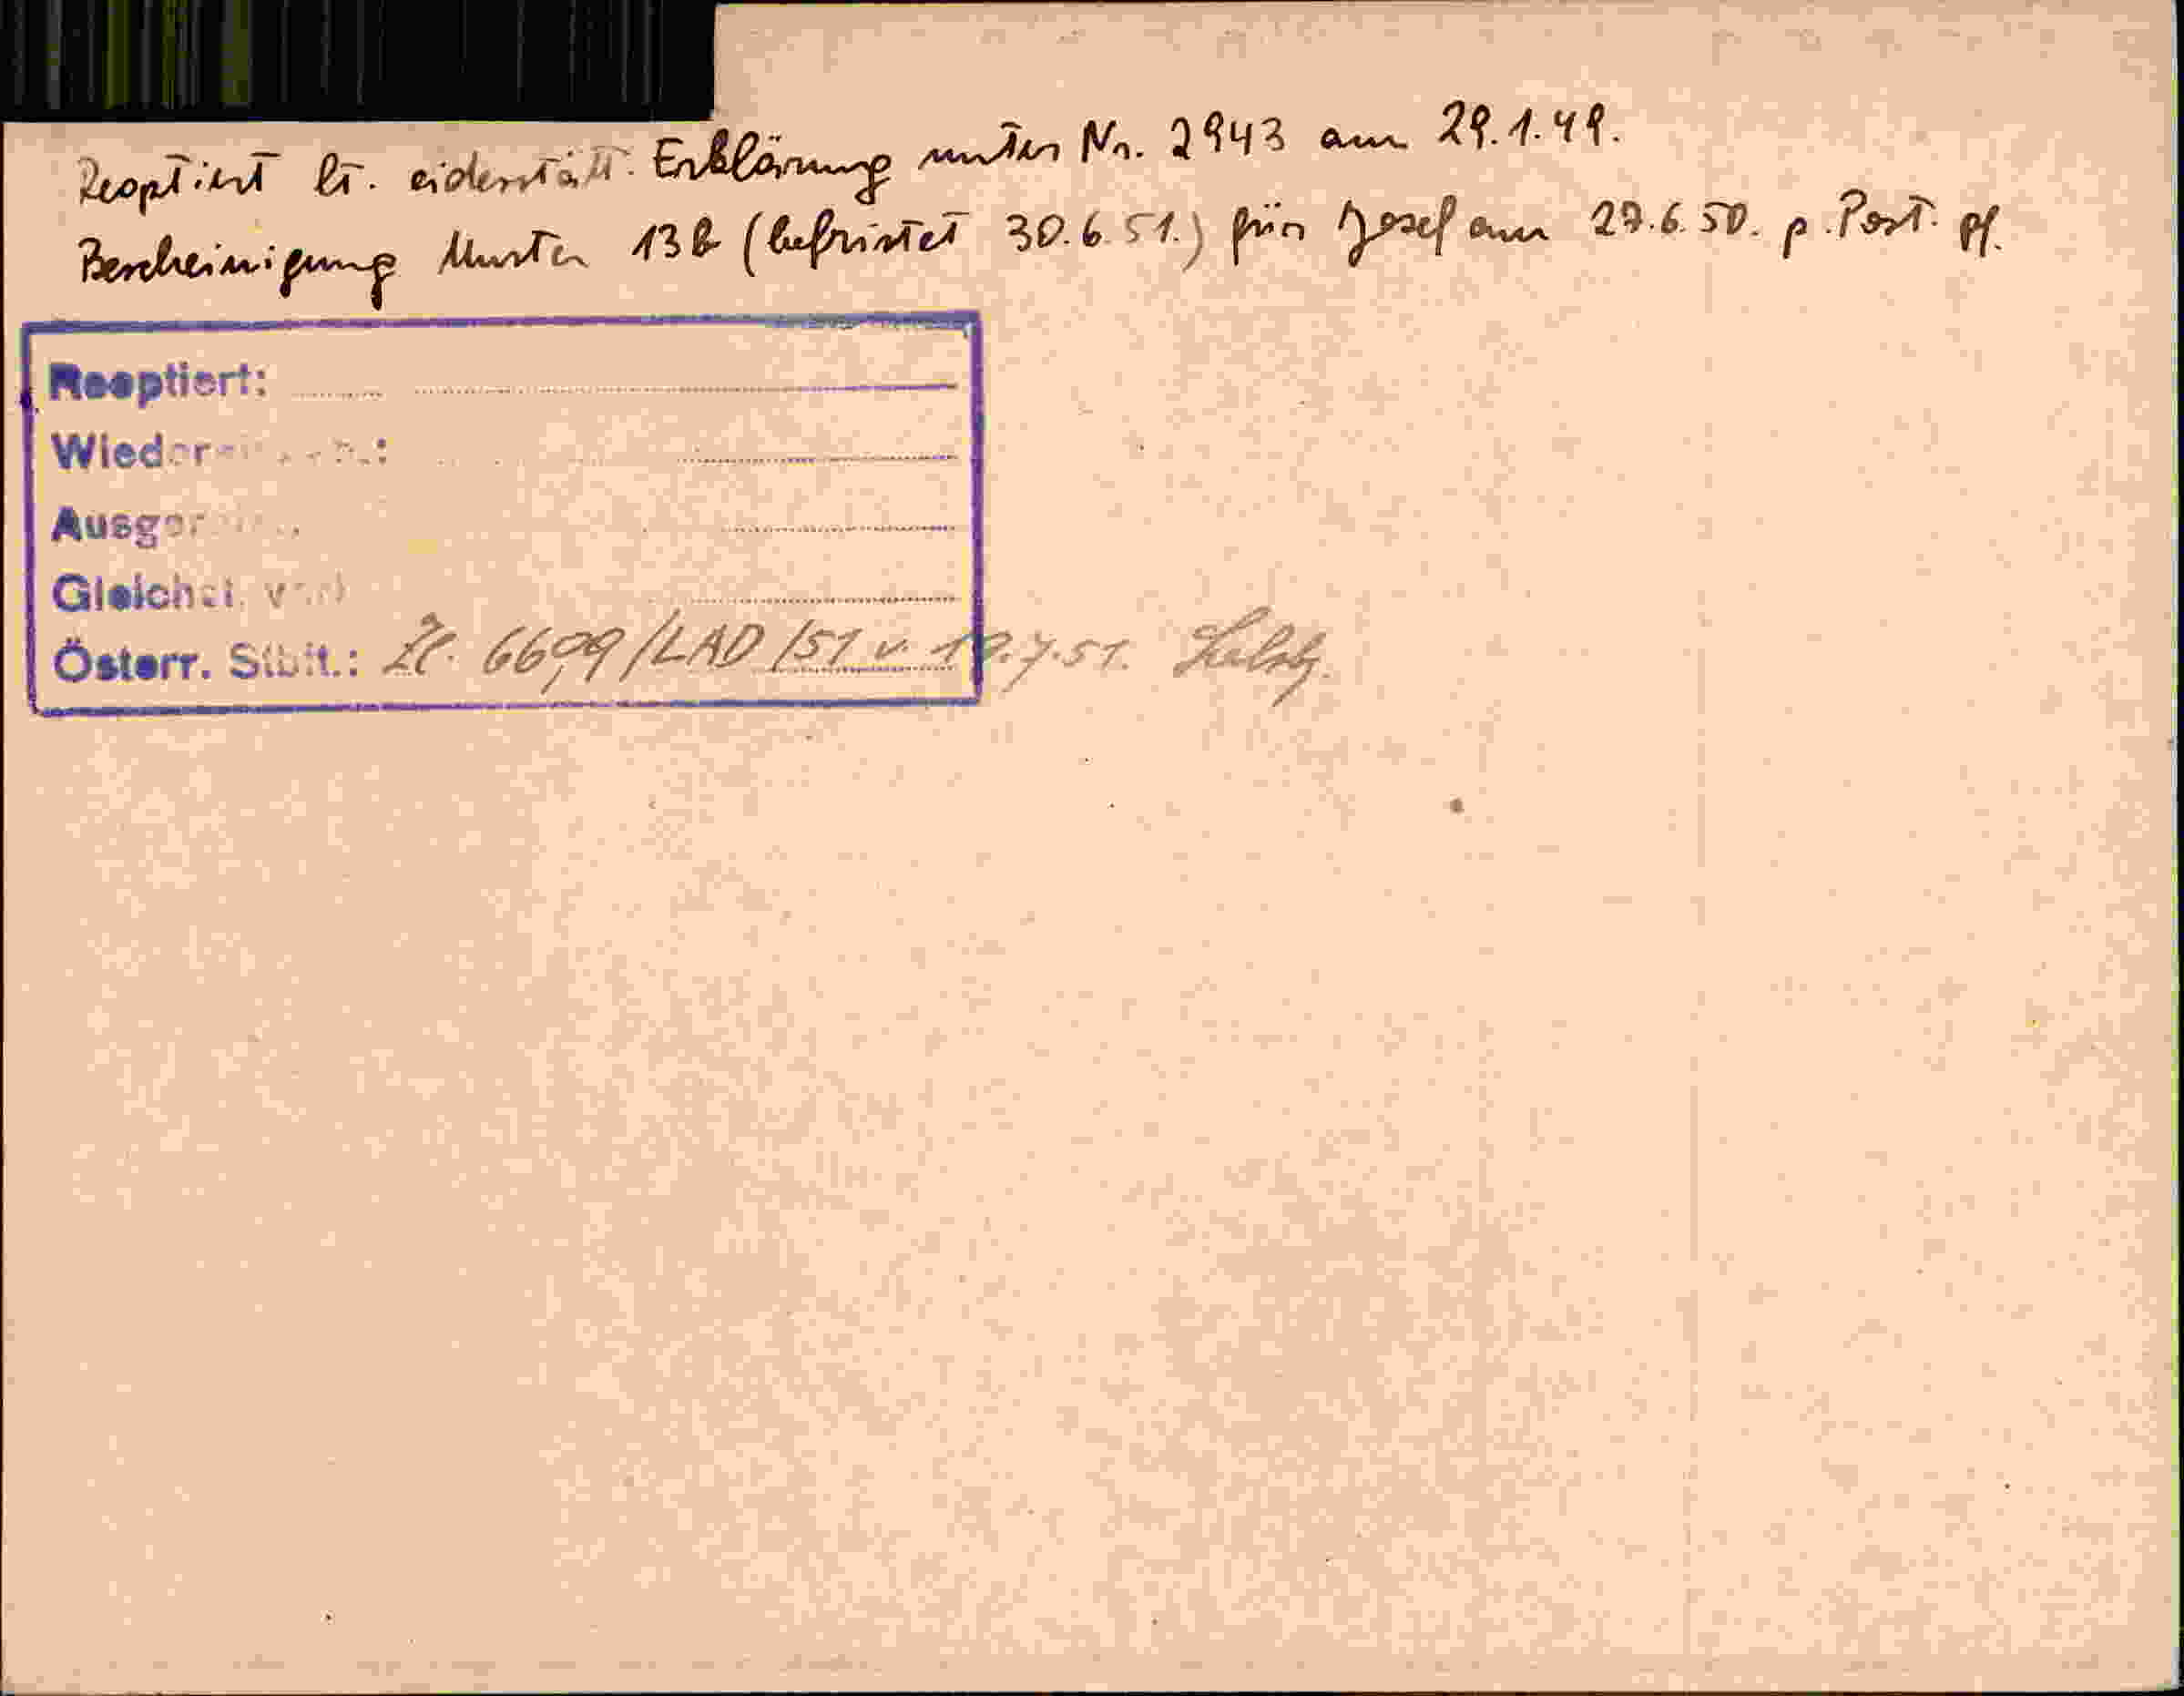 Reoptiert lt. eidesstatt. Erklärung unter Nr. 2943 am 29.1.49.
Bescheinigung Muster 13b (befristet 30.6.51.) für Josef am 27.6.50. p. Post. pf.
Reoptiert:
Österr. Stbft.: Zl. /LAD/51 v. 19.7.51. Salzbg.